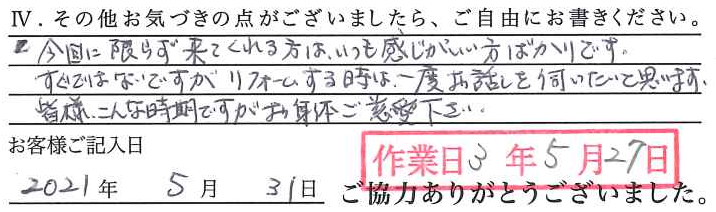 Ⅳ．その他お気づきの点がございましたら、ご自由にお書きください。
今回に限らず来てくれる方は、いつも感じがいい方ばかりです。
すぐではないですがリフォームする時は、一度お話しを伺いたいと思います。
皆様、こんな時期ですがお身体ご慈愛下さい。
お客様ご記入日
作業日 3 年 5 月 27 日
2021 年 5 月 31 日 ご協力ありがとうございました。